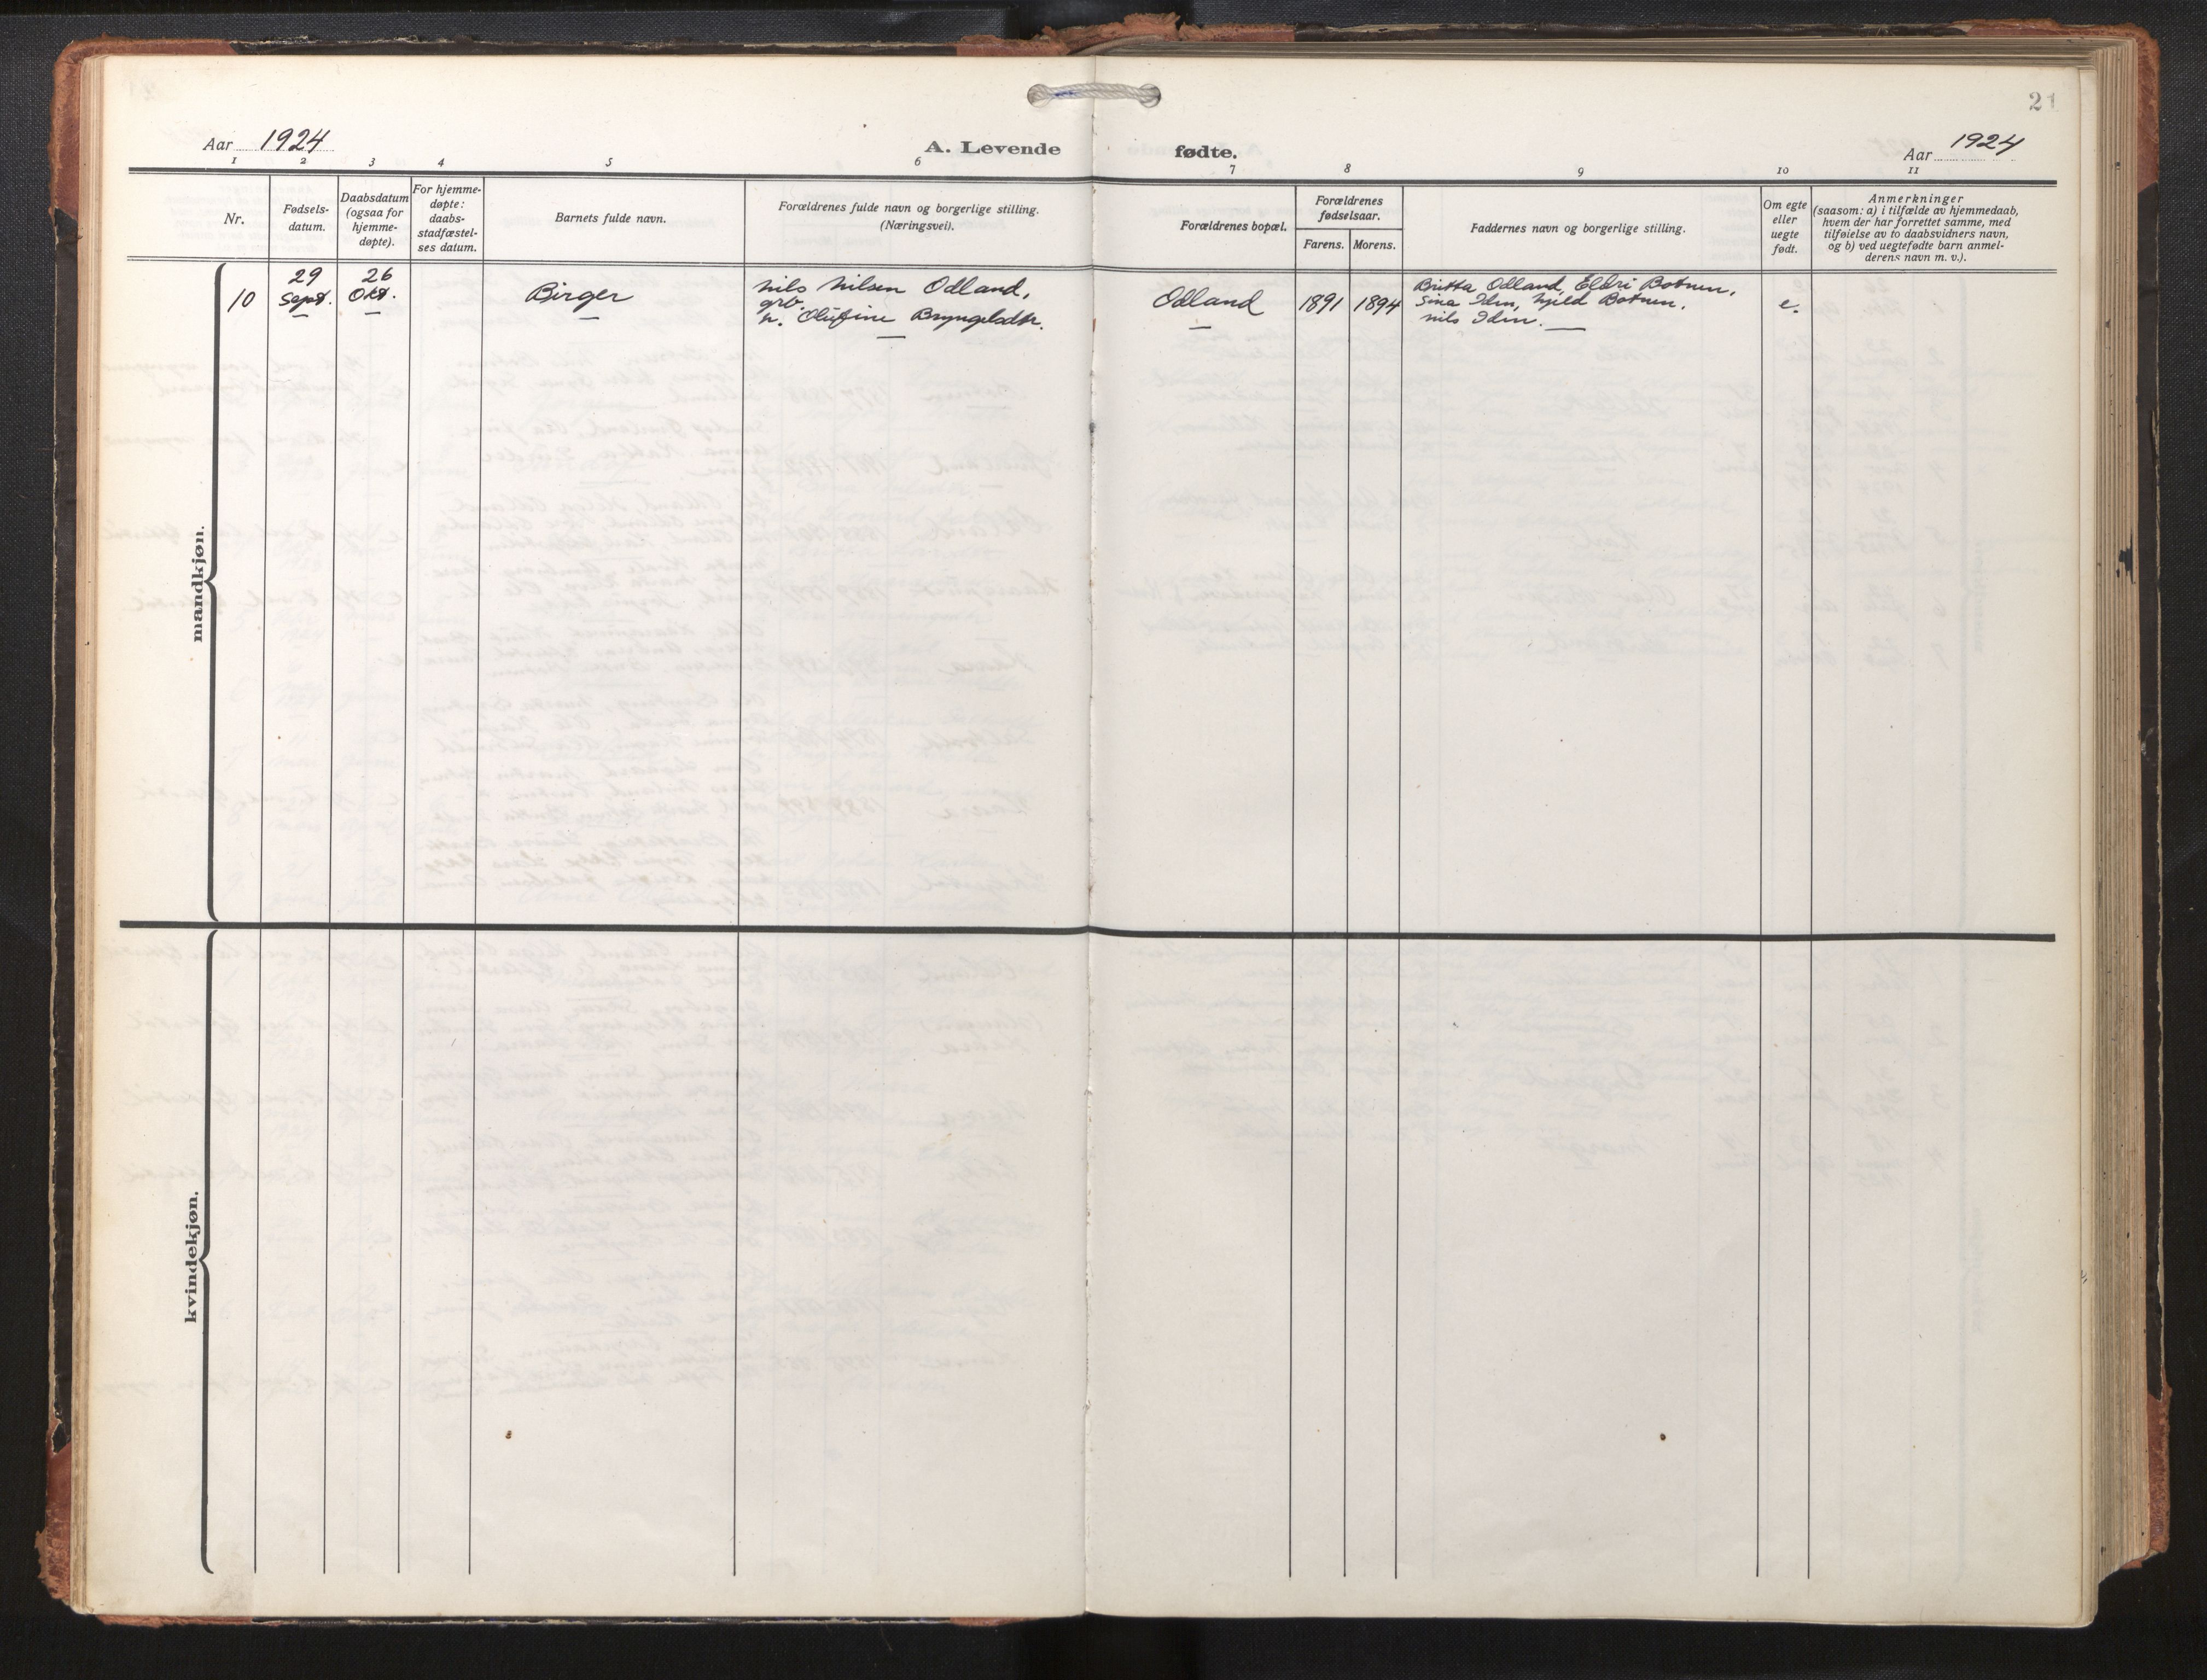 21
Aar 1924
A. Levende fødte.
Aar 1924
1 2 3 4 5 6 7 8 9 10 11
Nr.
Fødsels-
datum.
Daabsdatum
(ogsaa for
hjemme-
døpte).
For hjemme-
døpte:
daabs-
stadfæstel-
ses datum.
Barnets fulde navn.
Forældrenes fulde navn og borgerlige stilling.
(Næringsvei).
Forældrenes bopæl.
Forældrenes
fødselsaar.
Farens. Morens.
Faddernes navn og borgerlige stilling.
Om egte
eller
uegte
født.
Anmerkninger
(saasom: a) i tilfælde av hjemmedaab,
hvem der har forrettet samme, med
tilføielse av to daabsvidners navn,
og b) ved uegtefødte barn anmel-
derens navn m. v.).
mandkjøn.
10
29
Sept.
26
Okt.
Birger
Nils Nilsen Odland,
grb.
h. Olufine Bryngelsdtr.
Odland
1891
1894
Britta Odland, Eldri Botnen,
Sina Iden, Mjeld Botnen,
Nils Iden.
e.
kvindekjøn.